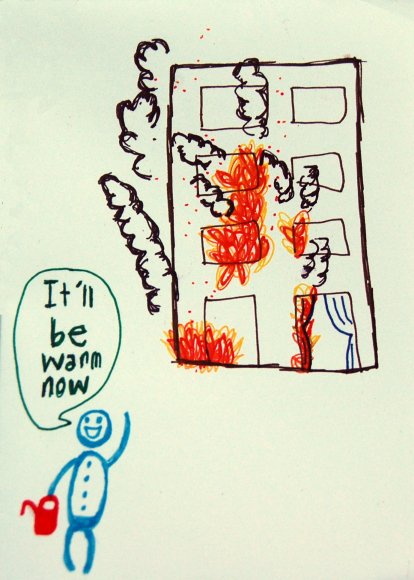 It'll
be
warm
now